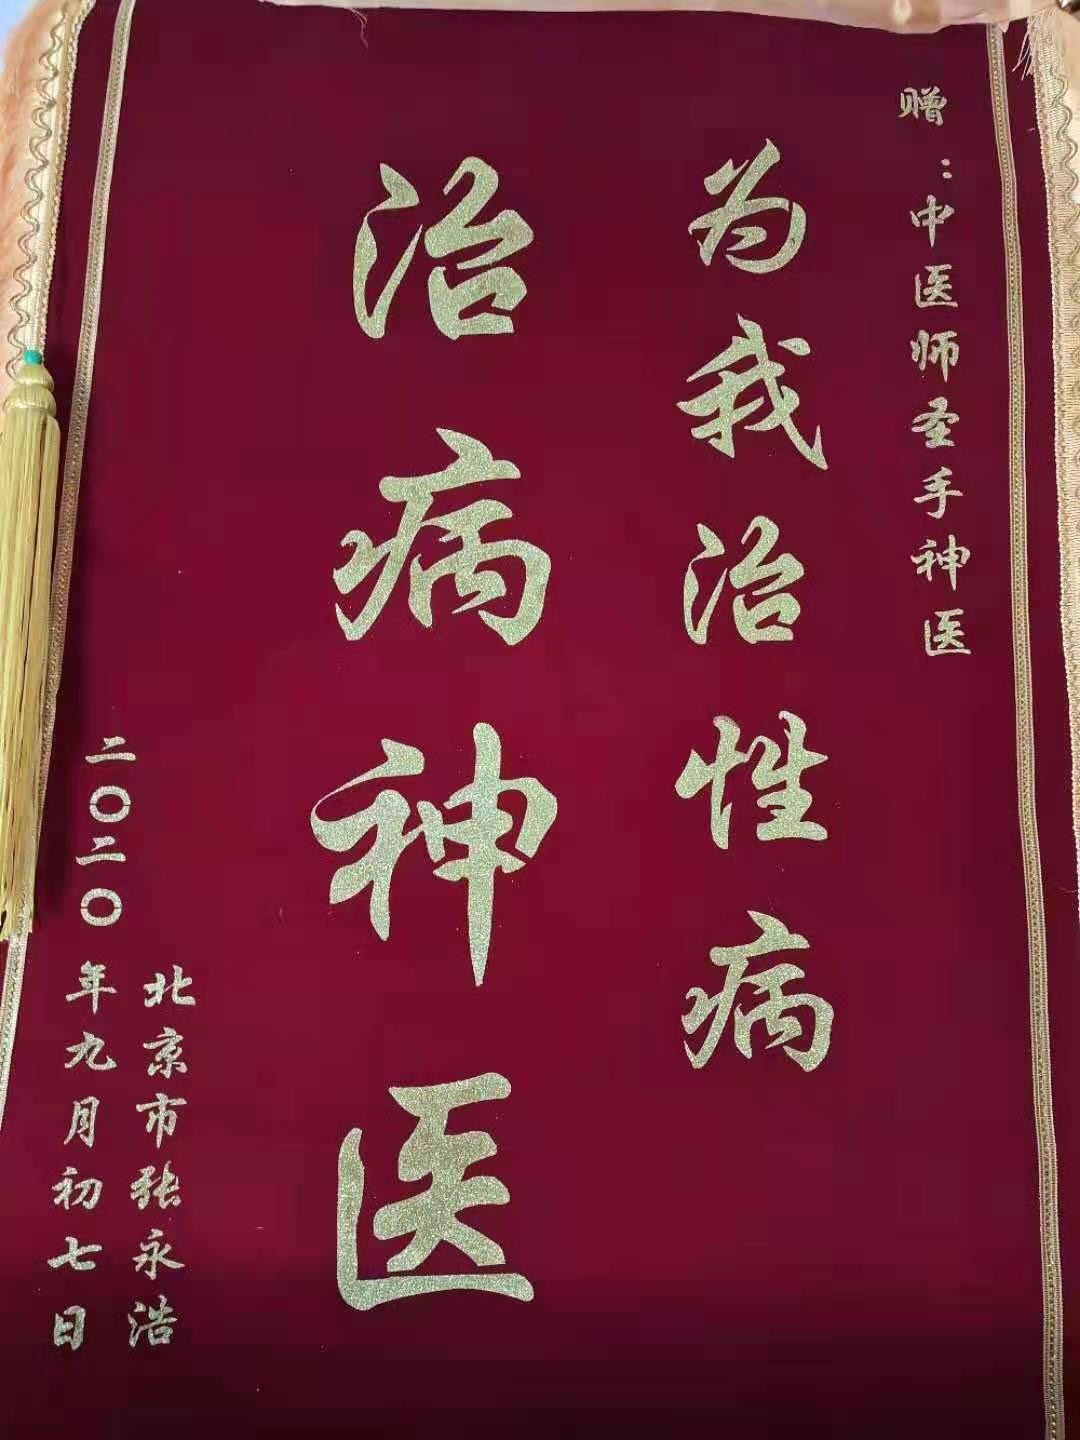 赠：中医师圣手神医
为我治性病
治病神医
北京市张永浩
二〇二〇年九月初七日